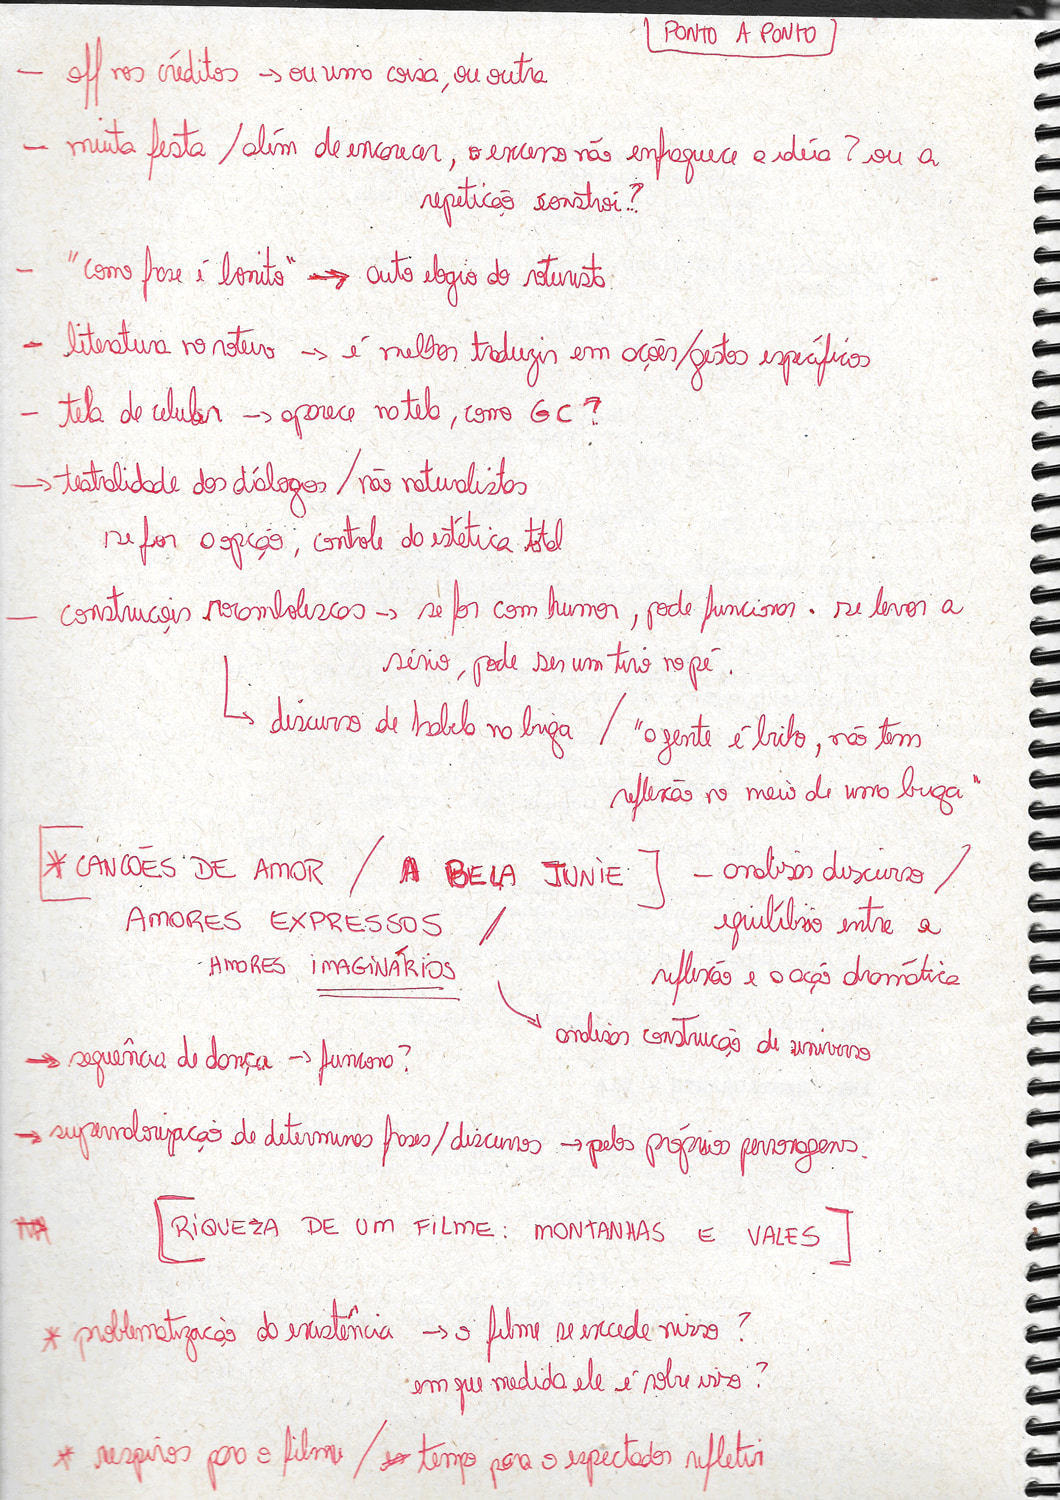 [PONTO A PONTO]
- off nos créditos → ou uma coisa, ou outra
- muita festa / além de encarecer, o excesso não enfraquece a idéia? ou a
repetição constroi?
- "como frase é bonito" → auto elogio do roteirista
- literatura no roteiro → é melhor traduzir em ações/gestos específicos
- tela de celular → aparece na tela, como GC?
→ teatralidade dos diálogos / não naturalistas
se for a opção, controle da estética total
- construções rocambolescas → se for com humor, pode funcionar. se levar a
sério, pode ser um tiro no pé.
↳ discurso de na briga / "a gente é bicho, não tem
reflexão no meio de uma briga"
[* CANÇÕES DE AMOR / A BELA JUNIE] - analisar discurso /
AMORES EXPRESSOS / equilíbrio entre a
AMORES IMAGINÁRIOS reflexão e a ação dramática
→ analisar construção de universo
→ sequência de dança → funciona?
→ supervalorização de determinas frases/discursos → pelos próprios personagens.
[RIQUEZA DE UM FILME: MONTANHAS E VALES]
* problematização da existência → o filme se excede nisso?
em que medida ele é sobre isso?
* respiros para o filme / tempo para o espectador refletir